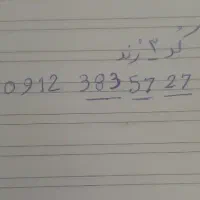 کد ۳ زند
0912 383 57 27